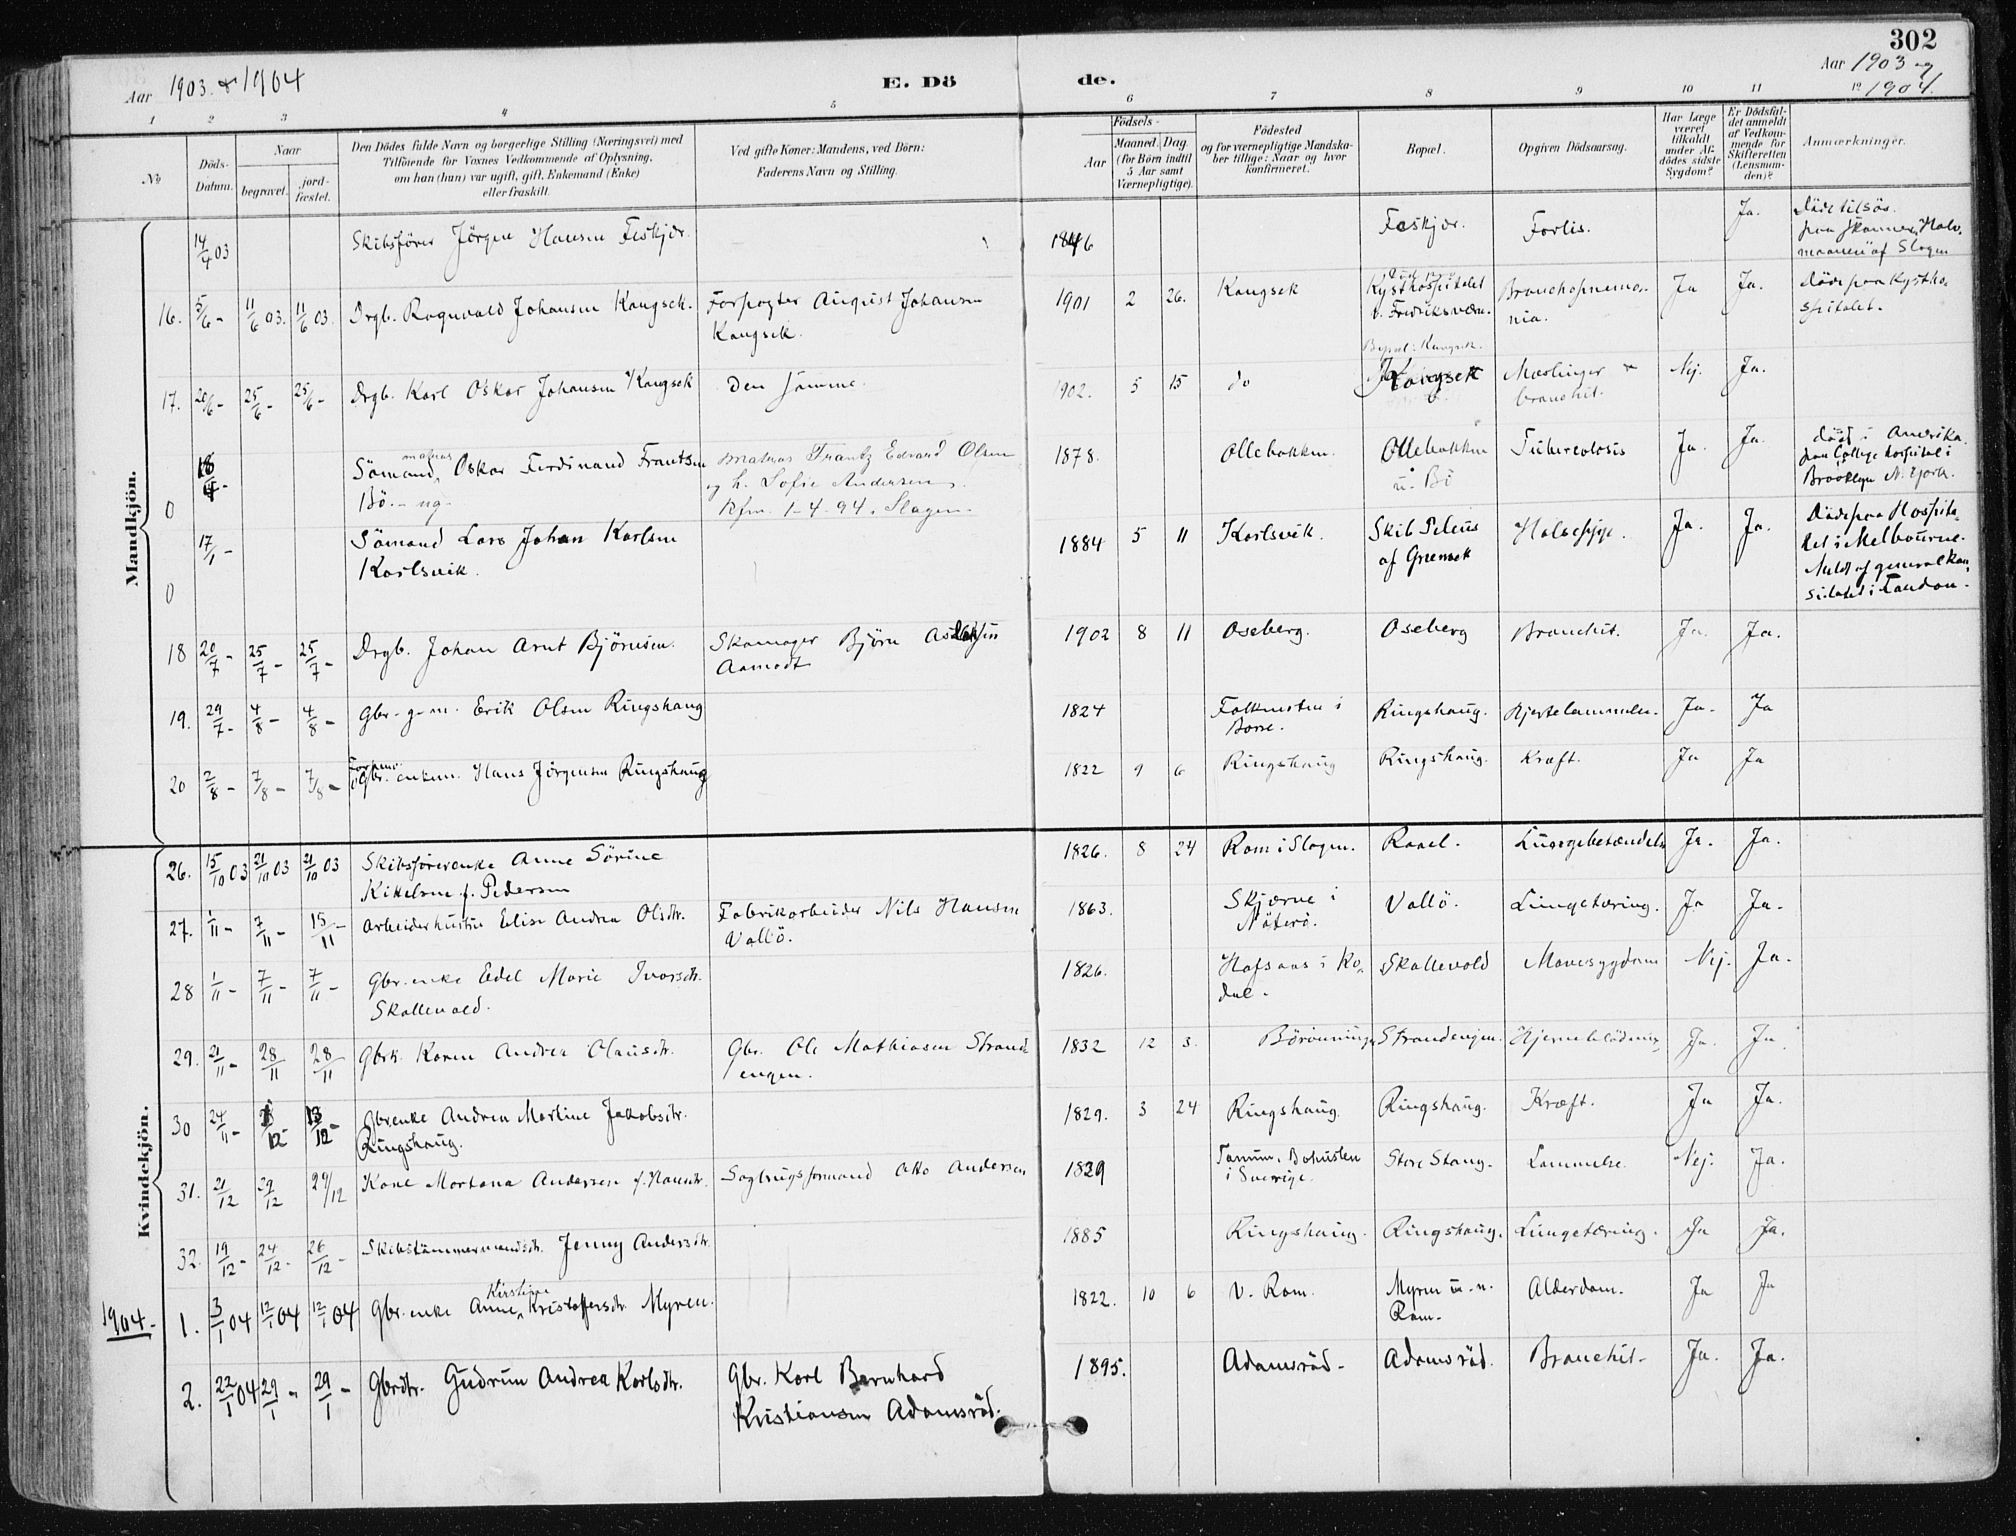 302
Aar 1903 & 1904 E. Dö de. Aar 1903 og 1904.
1 2 3 4 5 6 7 8 9 10 11 12
No Döds-Datum. Naar begravet. jord-fæstet.
Den Dödes fulde Navn og borgerlige Stilling (Næringsvei) med
Tilföiende for Voxnes Vedkommende af Oplysning,
om han (hun) var ugift, gift, Enkemand (Enke)
eller fraskilt.
Ved gifte Koner: Mandens, ved Börn:
Faderens Navn og Stilling.
Födsels-
Aar Maaned. Dag.
(for Börn indtil
5 Aar samt
Værnepligtige).
Födested
og for værnepligtige Mandska-
ber tillige: Naar og hvor
konfirmeret.
Bopæl.
Opgiven Dödsaarsag.
Har Læge
været
tilkaldt
under Af-
dödes sidste
Sygdom?
Er Dödsfal-
det anmeldt
af Vedkom-
mende for
Skifteretten
(Lensman-
den)?
Anmærkninger.
Mandkjön.
14/4 03 Skibsförer Jörgen Hansen Feskjær. 1846 Feskjær. Forlis. Ja. Döde tilsös
paa Skonner "Halv-
maanen" af Slagen
16. 5/6 - 11/6 03. 11/6 03. Drgb. Ragnvald Johansen Kongsek. Forpagter August Johansen 1901 2 26. Kongsek Kysthospitalet Bronchopnemo- Ja Ja. Döde paa Kystho-
Kongsek. v. Fredriksværn. nia. spitalet.
17. 20/6 - 25/6 - 25/6 - Drgb. Karl Oskar Johansen Kongsek Den samme. 1902. 5 15 do Kongsek Mæslinger & Nej. Ja.
bronchit.
0 Sömand, matros Oskar Ferdinand Frantsen Matros Frantz Edvard Olsen 1878. Ollebakken. Ollebakken Tuberculosis Ja. Ja. död i Amerika
Bö. - ug- og h. Sofie Andersen. u. Bö paa College Hospital i
Kfm. 1-4-94. Slagen. Brooklyn N. York.
0 17/1 - Sömand Lars Johan Karlsen 1884 5 11 Karlsvik. Skib Peleus Halsesyge. Ja. Ja. Döde paa Hospita-
Karlsvik. af Greenock let i Melbourne.
Meldt af generalkon-
sulatet i London.
18 20/7 - 25/7 - 25/7 - Drgb. Johan Arnt Björnsen. Skomager Björn 1902 8 11 Oseberg. Oseberg Bronchit. Ja. Ja.
Aamodt
19. 29/7 - 4/8 - 4/8 - Gbr. g.m. Erik Olsen Ringshaug 1824 Falkensten i Ringshaug. Hjertelammelse. Ja. Ja
Borre.
20 2/8 - 7/8 - 7/8 - Gbr. enkem. Hans Jörgensen Ringshaug 1822 9 6 Ringshaug Ringshaug. Kræft. Ja Ja
Kvindekjön.
26. 15/10 03 21/10 03 21/10 03 Skibsförerenke Anne Sörine 1826. 8 24 Rom i Slagen. Raael. Lungebetændelse Ja. Ja.
Kittelsen f. Pedersen
27. 1/11 - 7/11 - 15/11 - Arbeiderhustru Elise Andrea Olsdtr. Fabrikarbeider Nils Hansen 1863. Skjærve i Vallö. Lungetæring. Ja Ja.
Vallö. Nöterö.
28 1/11 - 7/11 - 7/11 - Gbr.enke Edel Marie Ivarsdtr. 1826. Hafsaas i Ko- Skallevold Mavesygdom Nej. Ja.
Skallevold. dal.
29. 21/11 - 28/11 28/11 Gbrk. Karen Andrea Olausdtr. Gbr. Ole Mathiasen Strand- 1832 12 3. Börönningen Strandengen. Hjerneblödning Ja. Ja.
engen.
30 24/11 - Gbrenke Andrea Martine Jakobsdtr. 1829. 3 24 Ringshaug. Ringshaug. Kræft. Ja Ja.
Ringshaug.
31. 21/12 29/12 29/12 Kone Martana Andersen f. Hansdtr. Sagbrugsformand Otto Andersen 1829 Tanum, Bohuslen Store Stang. Lammelse. Nej. Ja.
i Sverrige.
32. 19/12 - 24/12 - 26/12 - Skibstömmermandsdtr. Jenny Andersdtr. 1885 Ringshaug. Ringshaug. Lungetæring. Ja Ja.
1904.
1. 3/1 04 12/1 04 12/1 04 Gbr.enke Anne Kirstine Kristoffersdtr. Myren. 1822. 10 6 V. Rom. Myren u. n. Alderdom. Ja Ja
Rom.
2. 22/1 04 29/1 - 29/1 - Gbrdtr. Gudrun Andrea Karlsdtr. Gbr. Karl Bernhard 1895. Adamsröd. Adamsröd. Bronchit. Ja. Ja.
Kristiansen Adamsröd.